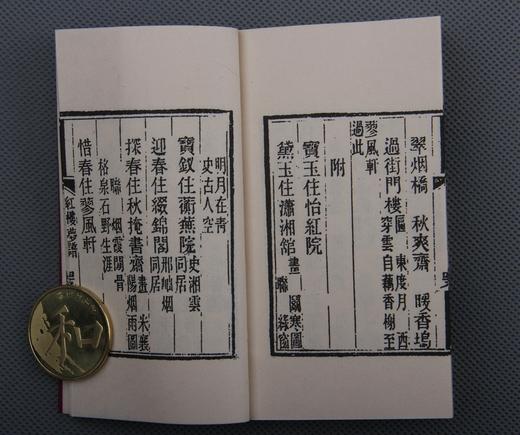 翠烟橋 秋爽齋 暖香塢
過街門樓 匾 東度月 西
穿雲 自藕香榭至
蓼風軒
過此
附
寶玉住怡紅院
黛玉住瀟湘館 畫 寒圖
聯 綠窗
明月在青
史古人空
寶釵住蘅蕪院 史湘雲
同居
迎春住綴錦閣 邢岫烟
同居
探春住秋掩書齋 畫 米襄
陽烟雨圖
聯 烟霞閒骨
格泉石野生涯
惜春住蓼風軒
紅樓夢譜
和